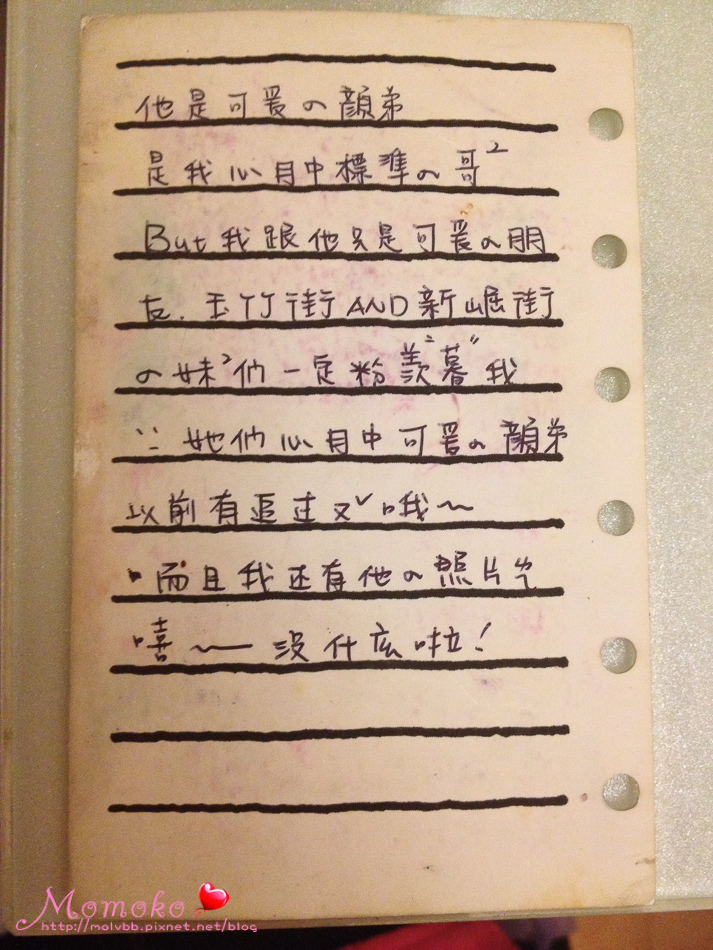 他是可爱の顏弟
是我心目中標準の哥²
But 我跟他只是可爱の朋
友. 玉竹街 AND 新崛街
の妹²们一定粉羨²暮" 我
∵她们心目中可爱の顏弟
以前有追过ㄡˇ哦～
而且我还有他の照片ㄘ
嘻～—沒什広啦！
Momoko
http://molvbb.pixnet.net/blog